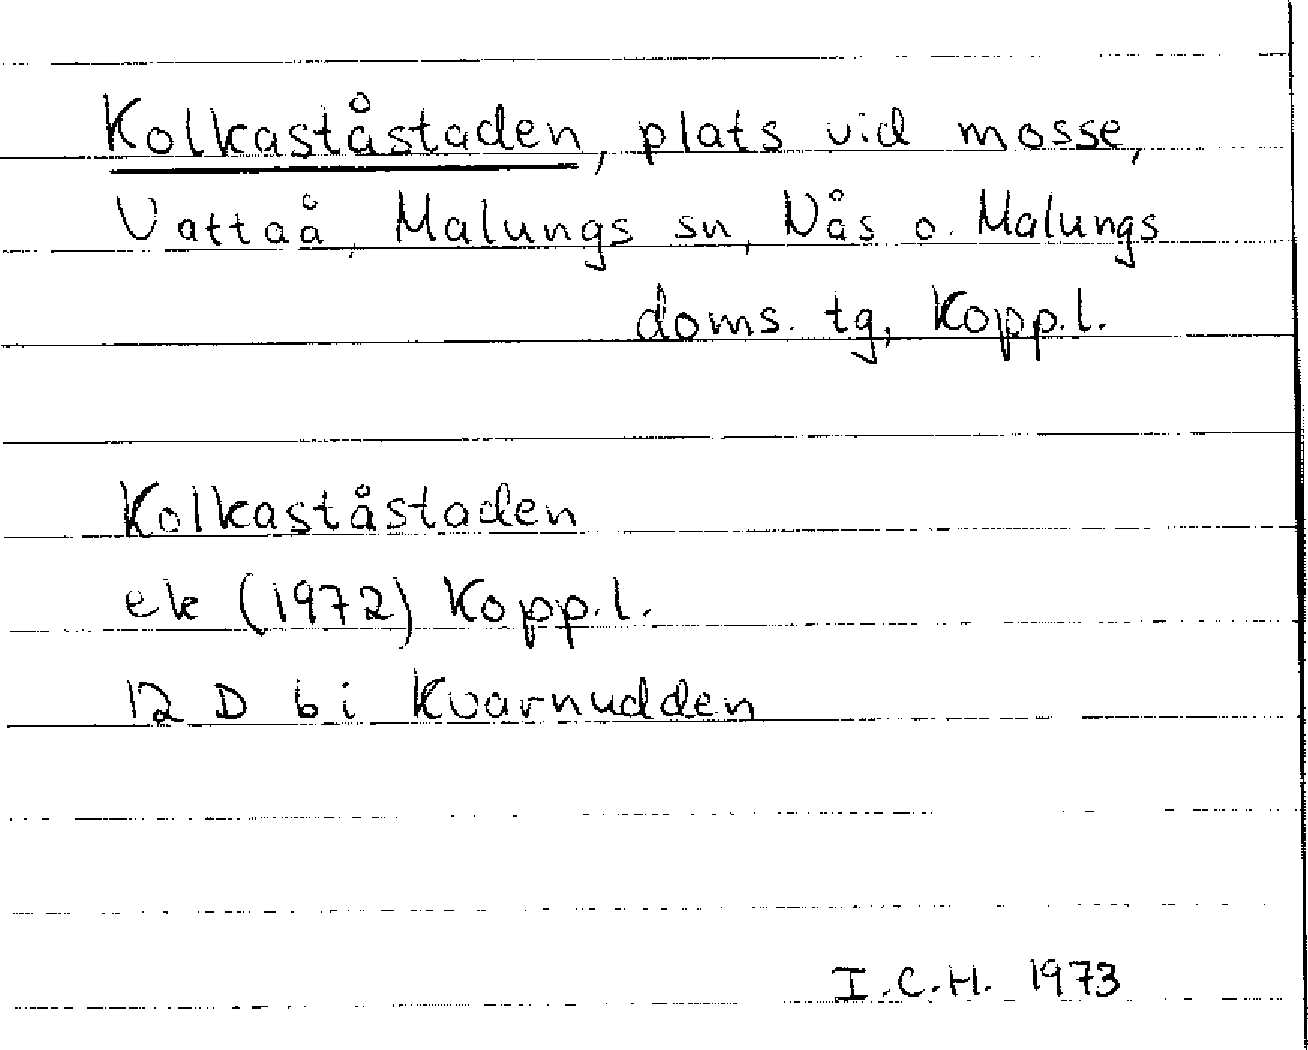 Kolkaståstaden, plats vid mosse,
Vattaå, Malungs sn, Nås o. Malungs
doms. tg, Kopp.l.
Kolkaståstaden
ek (1972) Kopp.l.
12 D 6 i Kvarnudden
I.C.H. 1973